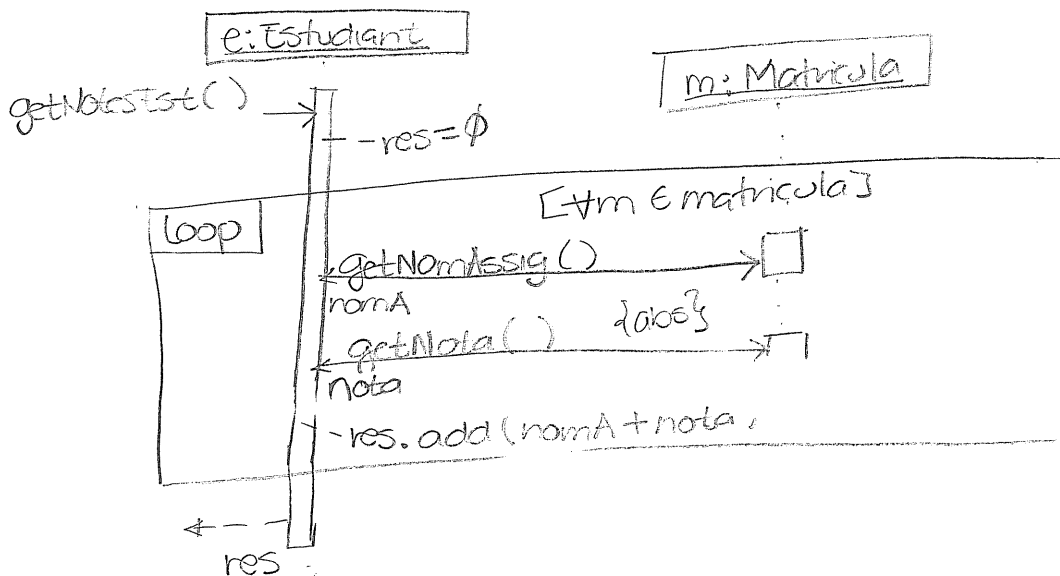 e: Estudiant
m: Matricula
getNotesEst()
-res=ϕ
loop
[∀m ∈ matricula]
getNomAssig()
nomA
{abs}
getNota()
nota
-res.add(nomA+nota,
res